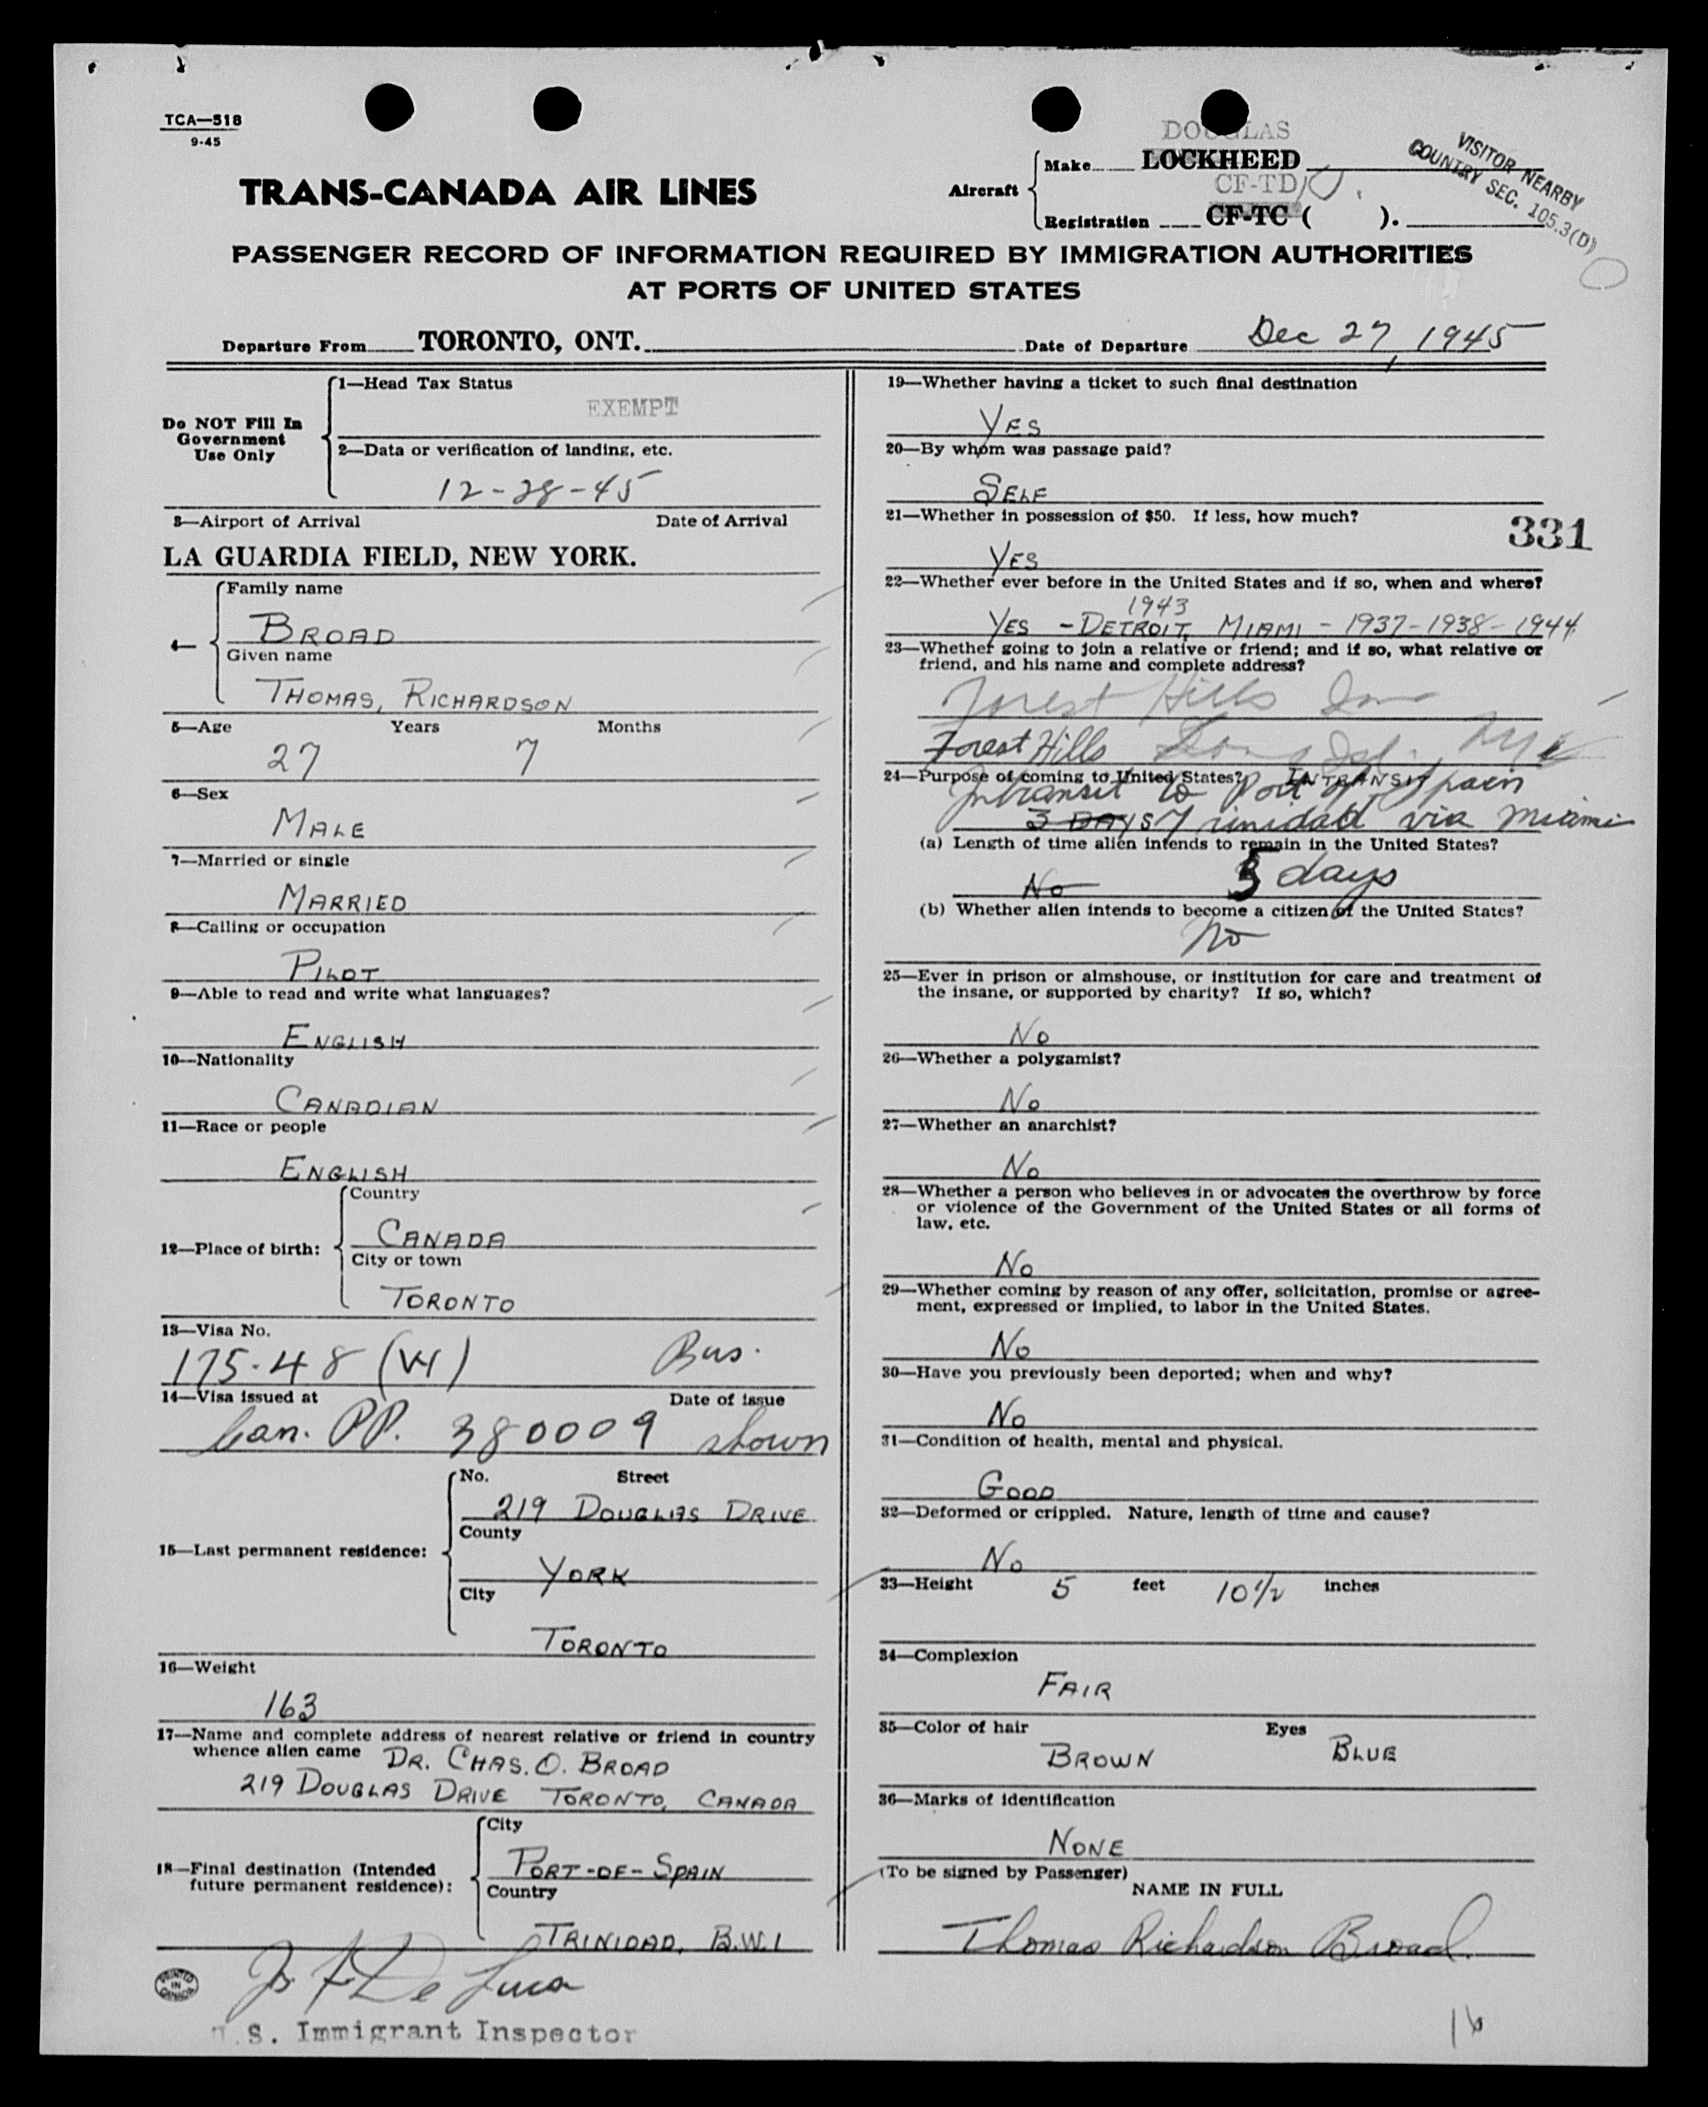 TCA—518
9-45
DOUGLAS
Make LOCKHEED
CF-TD
Aircraft
Registration CF-TC ( ).
VISITOR NEARBY
COUNTRY SEC. 105.3(D)
TRANS-CANADA AIR LINES
PASSENGER RECORD OF INFORMATION REQUIRED BY IMMIGRATION AUTHORITIES
AT PORTS OF UNITED STATES
Departure From TORONTO, ONT. Date of Departure Dec 27, 1945
Do NOT Fill In
Government
Use Only
1—Head Tax Status
EXEMPT
2—Data or verification of landing, etc.
12-28-45
3—Airport of Arrival Date of Arrival
LA GUARDIA FIELD, NEW YORK.
4—
Family name
BROAD
Given name
THOMAS, RICHARDSON
5—Age Years Months
27 7
6—Sex
MALE
7—Married or single
MARRIED
8—Calling or occupation
PILOT
9—Able to read and write what languages?
ENGLISH
10—Nationality
CANADIAN
11—Race or people
ENGLISH
12—Place of birth:
Country
CANADA
City or town
TORONTO
13—Visa No.
175.48 (W) Bus.
14—Visa issued at Date of issue
Can. PP. 380009 shown
15—Last permanent residence:
No. Street
219 DOUGLAS DRIVE
County
YORK
City
TORONTO
16—Weight
163
17—Name and complete address of nearest relative or friend in country
whence alien came DR. CHAS. O. BROAD
219 DOUGLAS DRIVE TORONTO, CANADA
18—Final destination (Intended
future permanent residence):
City
PORT-OF-SPAIN
Country
TRINIDAD, B.W.I
De Luca
U.S. Immigrant Inspector
PRINTED
IN
CANADA
19—Whether having a ticket to such final destination
YES
20—By whom was passage paid?
SELF
21—Whether in possession of $50. If less, how much?
331
YES
22—Whether ever before in the United States and if so, when and where?
1943
YES - DETROIT, MIAMI - 1937-1938-1944
23—Whether going to join a relative or friend; and if so, what relative or
friend, and his name and complete address?
Forest Hills
Forest Hills Long Isl. NY
24—Purpose of coming to United States? INTRANSIT
Intransit to Port of Spain
3 DAYS Trinidad via Miami
(a) Length of time alien intends to remain in the United States?
No 5 days
(b) Whether alien intends to become a citizen of the United States?
No
25—Ever in prison or almshouse, or institution for care and treatment of
the insane, or supported by charity? If so, which?
No
26—Whether a polygamist?
No
27—Whether an anarchist?
No
28—Whether a person who believes in or advocates the overthrow by force
or violence of the Government of the United States or all forms of
law, etc.
No
29—Whether coming by reason of any offer, solicitation, promise or agree-
ment, expressed or implied, to labor in the United States.
No
30—Have you previously been deported; when and why?
No
31—Condition of health, mental and physical.
GOOD
32—Deformed or crippled. Nature, length of time and cause?
No
33—Height 5 feet 10 1/2 inches
34—Complexion
FAIR
35—Color of hair Eyes
BROWN BLUE
36—Marks of identification
NONE
(To be signed by Passenger)
NAME IN FULL
Thomas Richardson Broad.
16